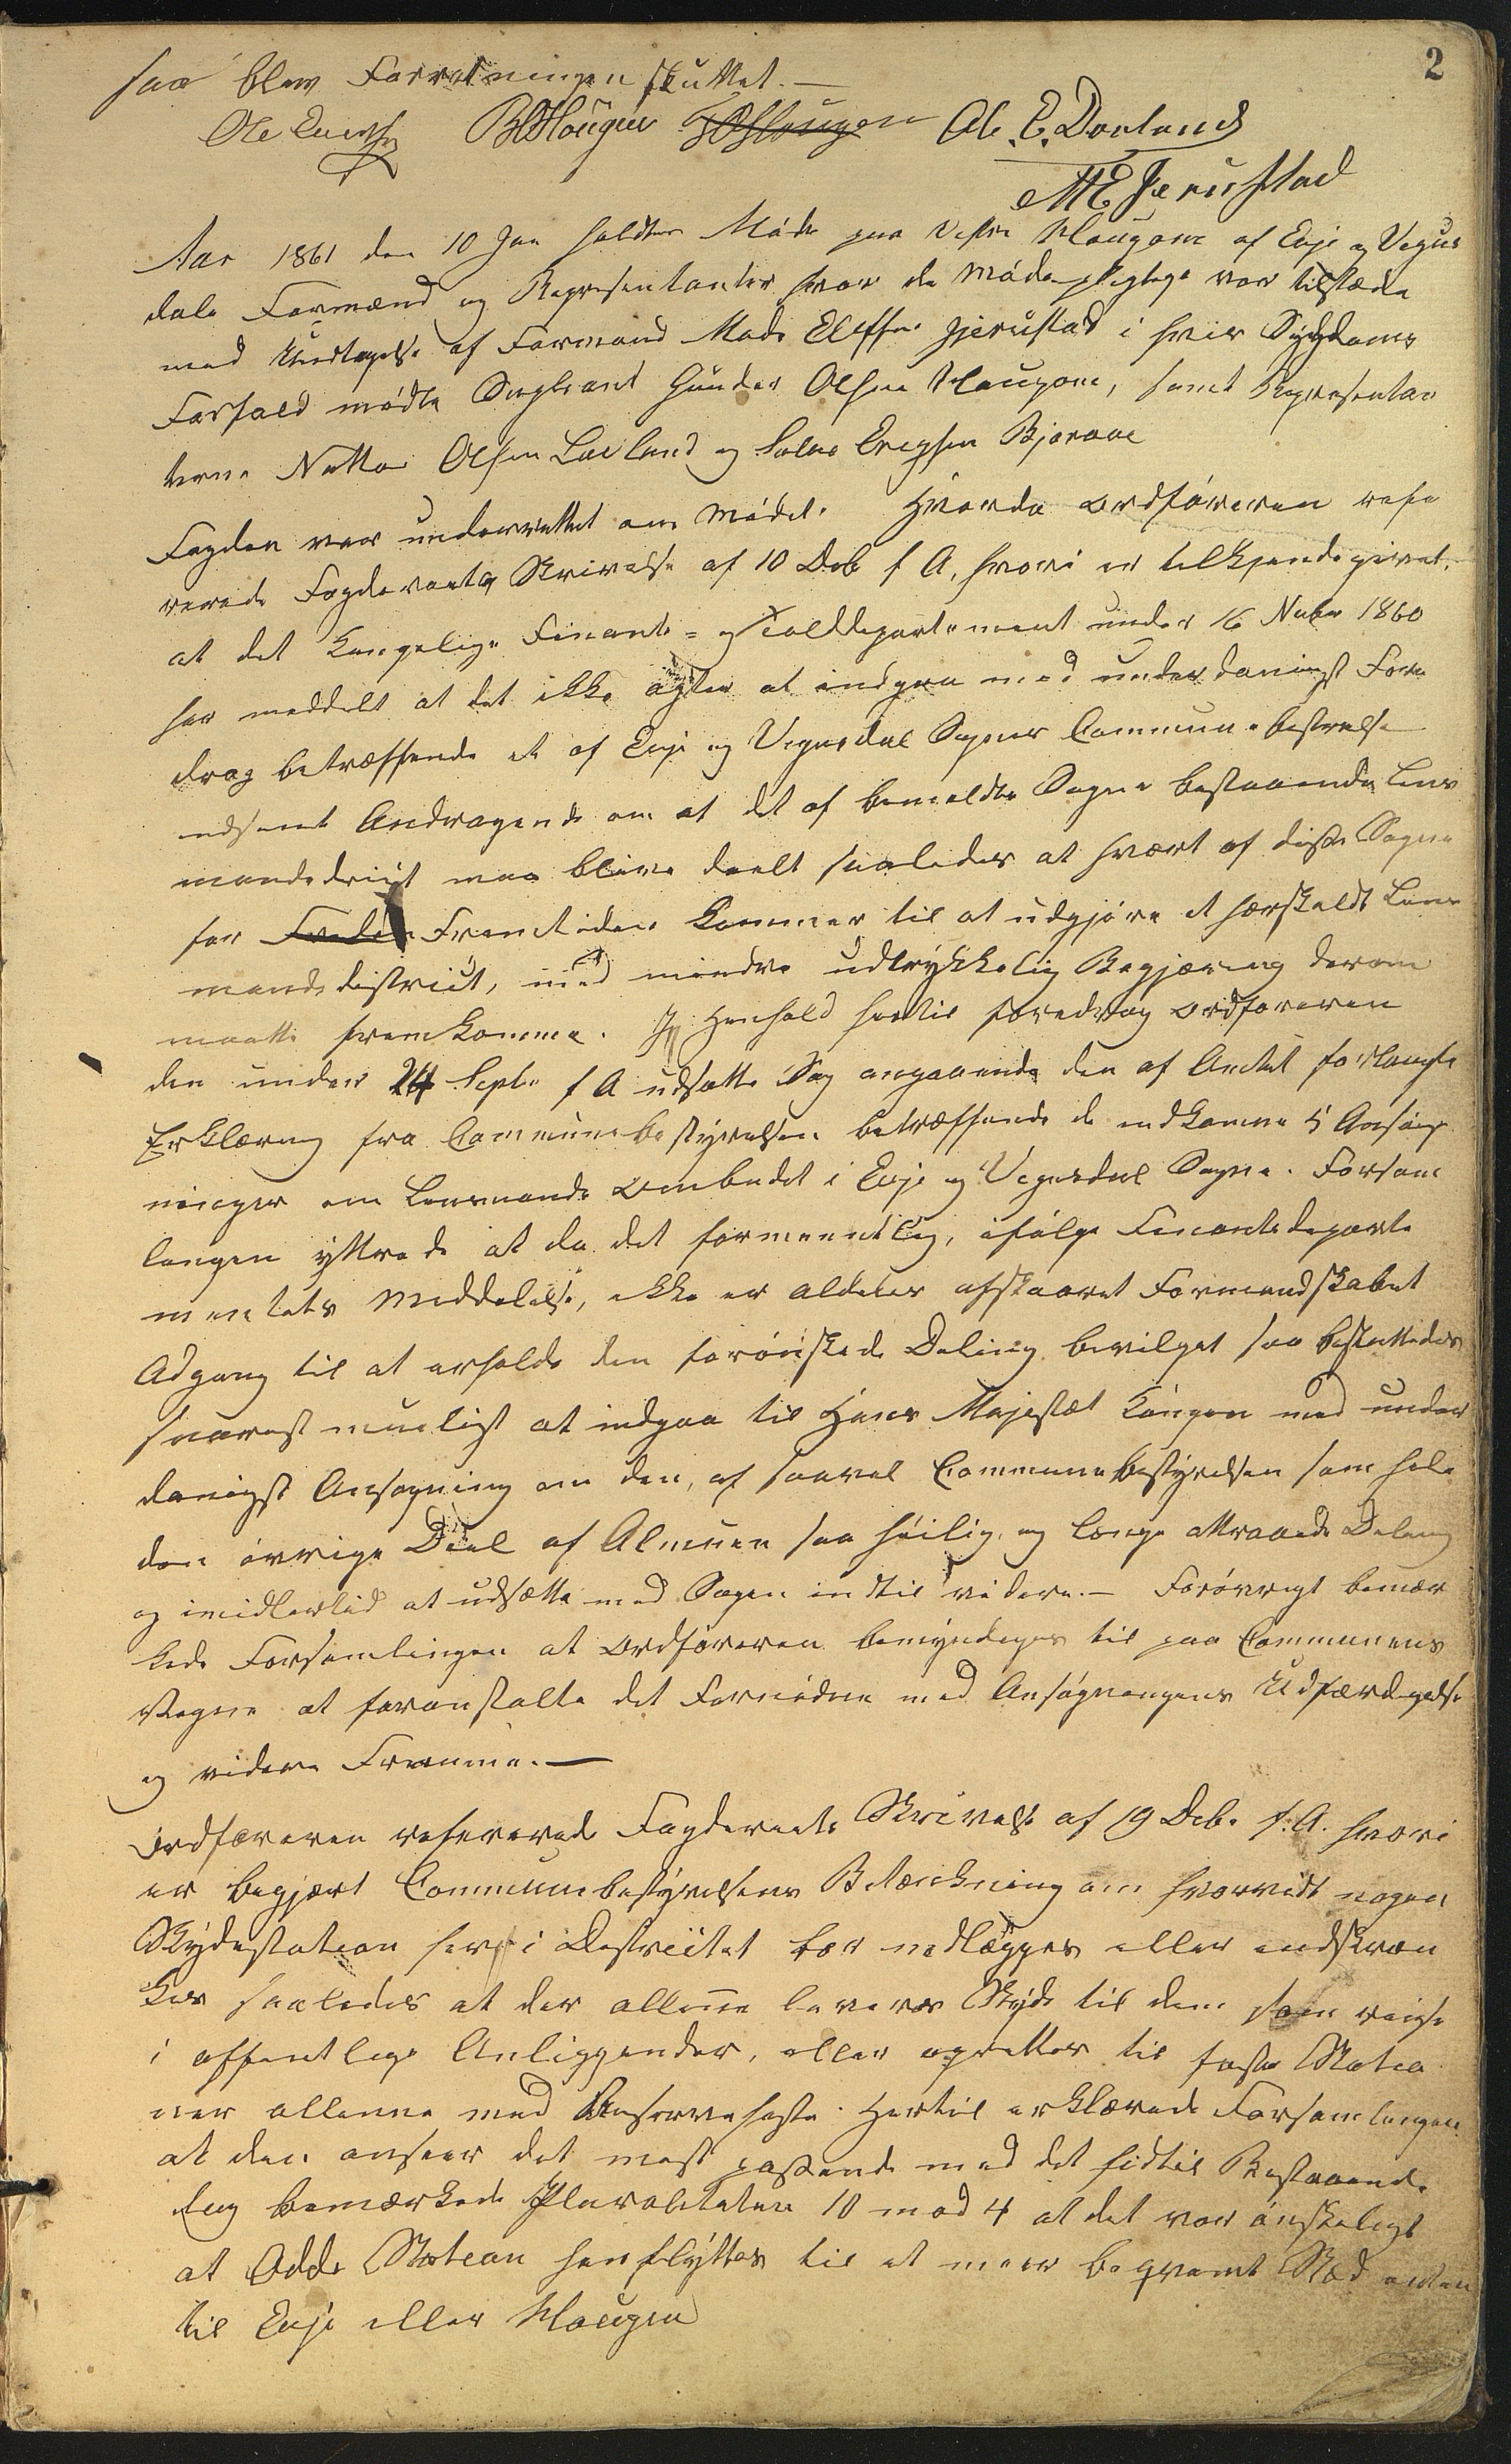 2
saa blev Forretningen sluttet. —
Ole Evensen B O Hougen Ole E. Dovland
M E Jerustad
Aar 1861 den 10 Jan holdtes Møde paa Vestre Hougane af Evje og Vegus
dals Formænd og Repræsentanter hvor de Mødepligtige var tilstæde
med Undtagelse af Formand Mads Elefsen Jjerustad i hvis Sygdoms
Forfald mødte Supleant Gunder Olsen Hougane, samt Repræsentan
terne Olsen Lauland og Salve Eregsen Bjoraae
Fogden var underrettet om Mødet. Hvorda Ordføreren refe
rerede Fogderiets Skrivelse af 10 Deb f A, hvori er tilkjendegivet,
at det Kongelige Finants- og Tolddepartement under 16 Nvbr 1860
har meddelt at det ikke agter at indgaa med underdanigst Fore
drag betræffende et af Evje og Vegusdal Sognes Communebestyrelse
indsendt Andragende om at det af bemeldte Sogne bestaaende Lens
mandsdrict maa blive deelt saaledes at hvært af disse Sogne
for Fremtiden kommer til at udgjøre et særskildt Lens
mandsdistrict, med mindre udtrykkelig Begjæring derom
maatte fremkomme. I Henhold hertil foredrog Ordføreren
den under 24 Septr f A udsatte Sag angaaende den af Amtet forlangte
Erklæring fra Communebestyrelsen betræffende de indkomne 5 Ansøg
ninger om Lensmands Ombudet i Evje og Vegusdal Sogne. Forsam
lingen yttrede at da det formeentlig, ifølge Finantsdeparte
mentets Meddelelse, ikke er aldeles afskaaret Formandskabet
Adgang til at erholde den forønskede Deling bevilget saa besluttedes
snarest mueligst at indgaa til Hans Majestæt Kongen med under
danigst Ansøgning om den, af saavel Communebestyrelsen som hele
den øvrige Deel af Almuen saa høilig og længe attraaede Deling
og imidlertid at udsætte med Sagen indtil videre. — Forøvrigt bemær
kede Forsamlingen at Ordføreren bemyndiges til paa Communens
Vegne at foranstalte det Fornødne med Ansøgningens Udfærdigelse
og videre Fremme. —
Ordføreren refererede Fogderiets Skrivelse af 19 Deb. f. A. hvori
er begjært Communebestyrelsens Betænkning om hvorvidt nogen
Skydsstation her i Districtet bør nedlægges eller indskræn
kes saaledes at der allene leveres Skyds til dem som reise
i offentlige Anliggender, eller oprettes til faste Statio
ner allene med Reserveheste. Hertil erklærede Forsamlingen
at den anseer det mest passende med det hidtil Bestaaende
Dog bemærkede Pluraliteten 10 mod 4 at det var ønskeligt
at Odde Station henflyttes til et meer beqvemt Sted enten
til Evje eller Hougen